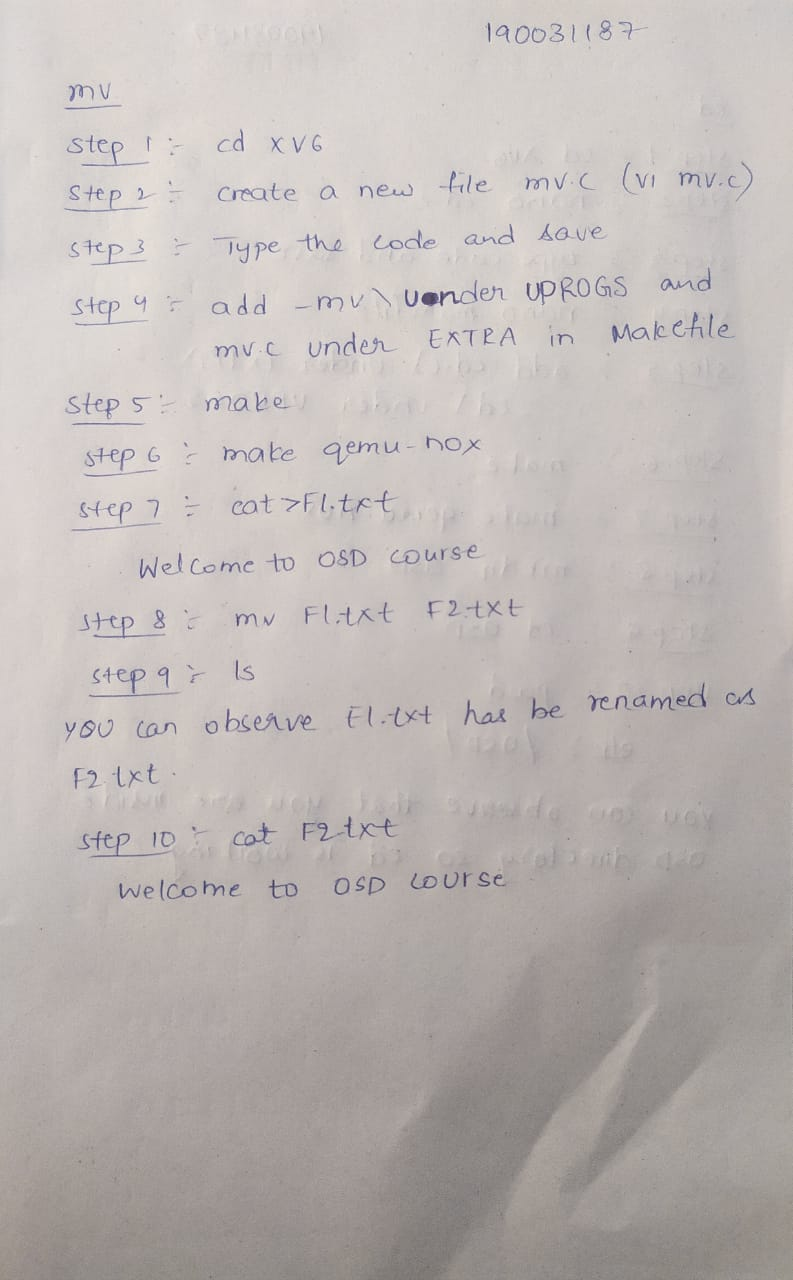 190031187
mv
Step 1 :- cd xv6
Step 2 :- create a new file mv.c (vi mv.c)
Step 3 :- Type the code and save
Step 4 :- add -mv\ under UPROGS and
mv.c under EXTRA in Makefile
Step 5 :- make
Step 6 :- make qemu-nox
Step 7 :- cat >F1.txt
Welcome to OSD course
Step 8 :- mv F1.txt F2.txt
Step 9 :- ls
you can observe F1.txt has be renamed as
F2.txt.
Step 10 :- cat F2.txt
Welcome to OSD course